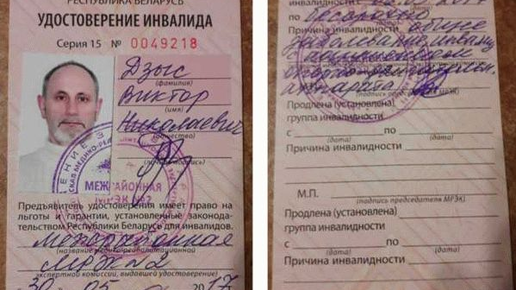 РЕСПУБЛИКА БЕЛАРУСЬ
УДОСТОВЕРЕНИЕ ИНВАЛИДА
Серия 15 № 0049218
Дзыс
(фамилия)
Виктор
(имя)
Николаевич
(отчество)
МЕЖРАЙОННАЯ
МРЭК №2
Предъявитель удостоверения имеет право на
льготы и гарантии, установленные законода-
тельством Республики Беларусь для инвалидов.
Межрайонная
МРЭК №2
экспертной комиссии, выдавшей удостоверение)
30 05 2017
инвалидности с
по бессрочно
Причина инвалидности общее
заболевание
аппарата
(подпись председателя МРЭК)
Продлена (установлена)
группа инвалидности
с по
(дата) (дата)
Причина инвалидности
М.П.
(подпись председателя МРЭК)
Продлена (установлена)
группа инвалидности
с по
(дата) (дата)
Причина инвалидности